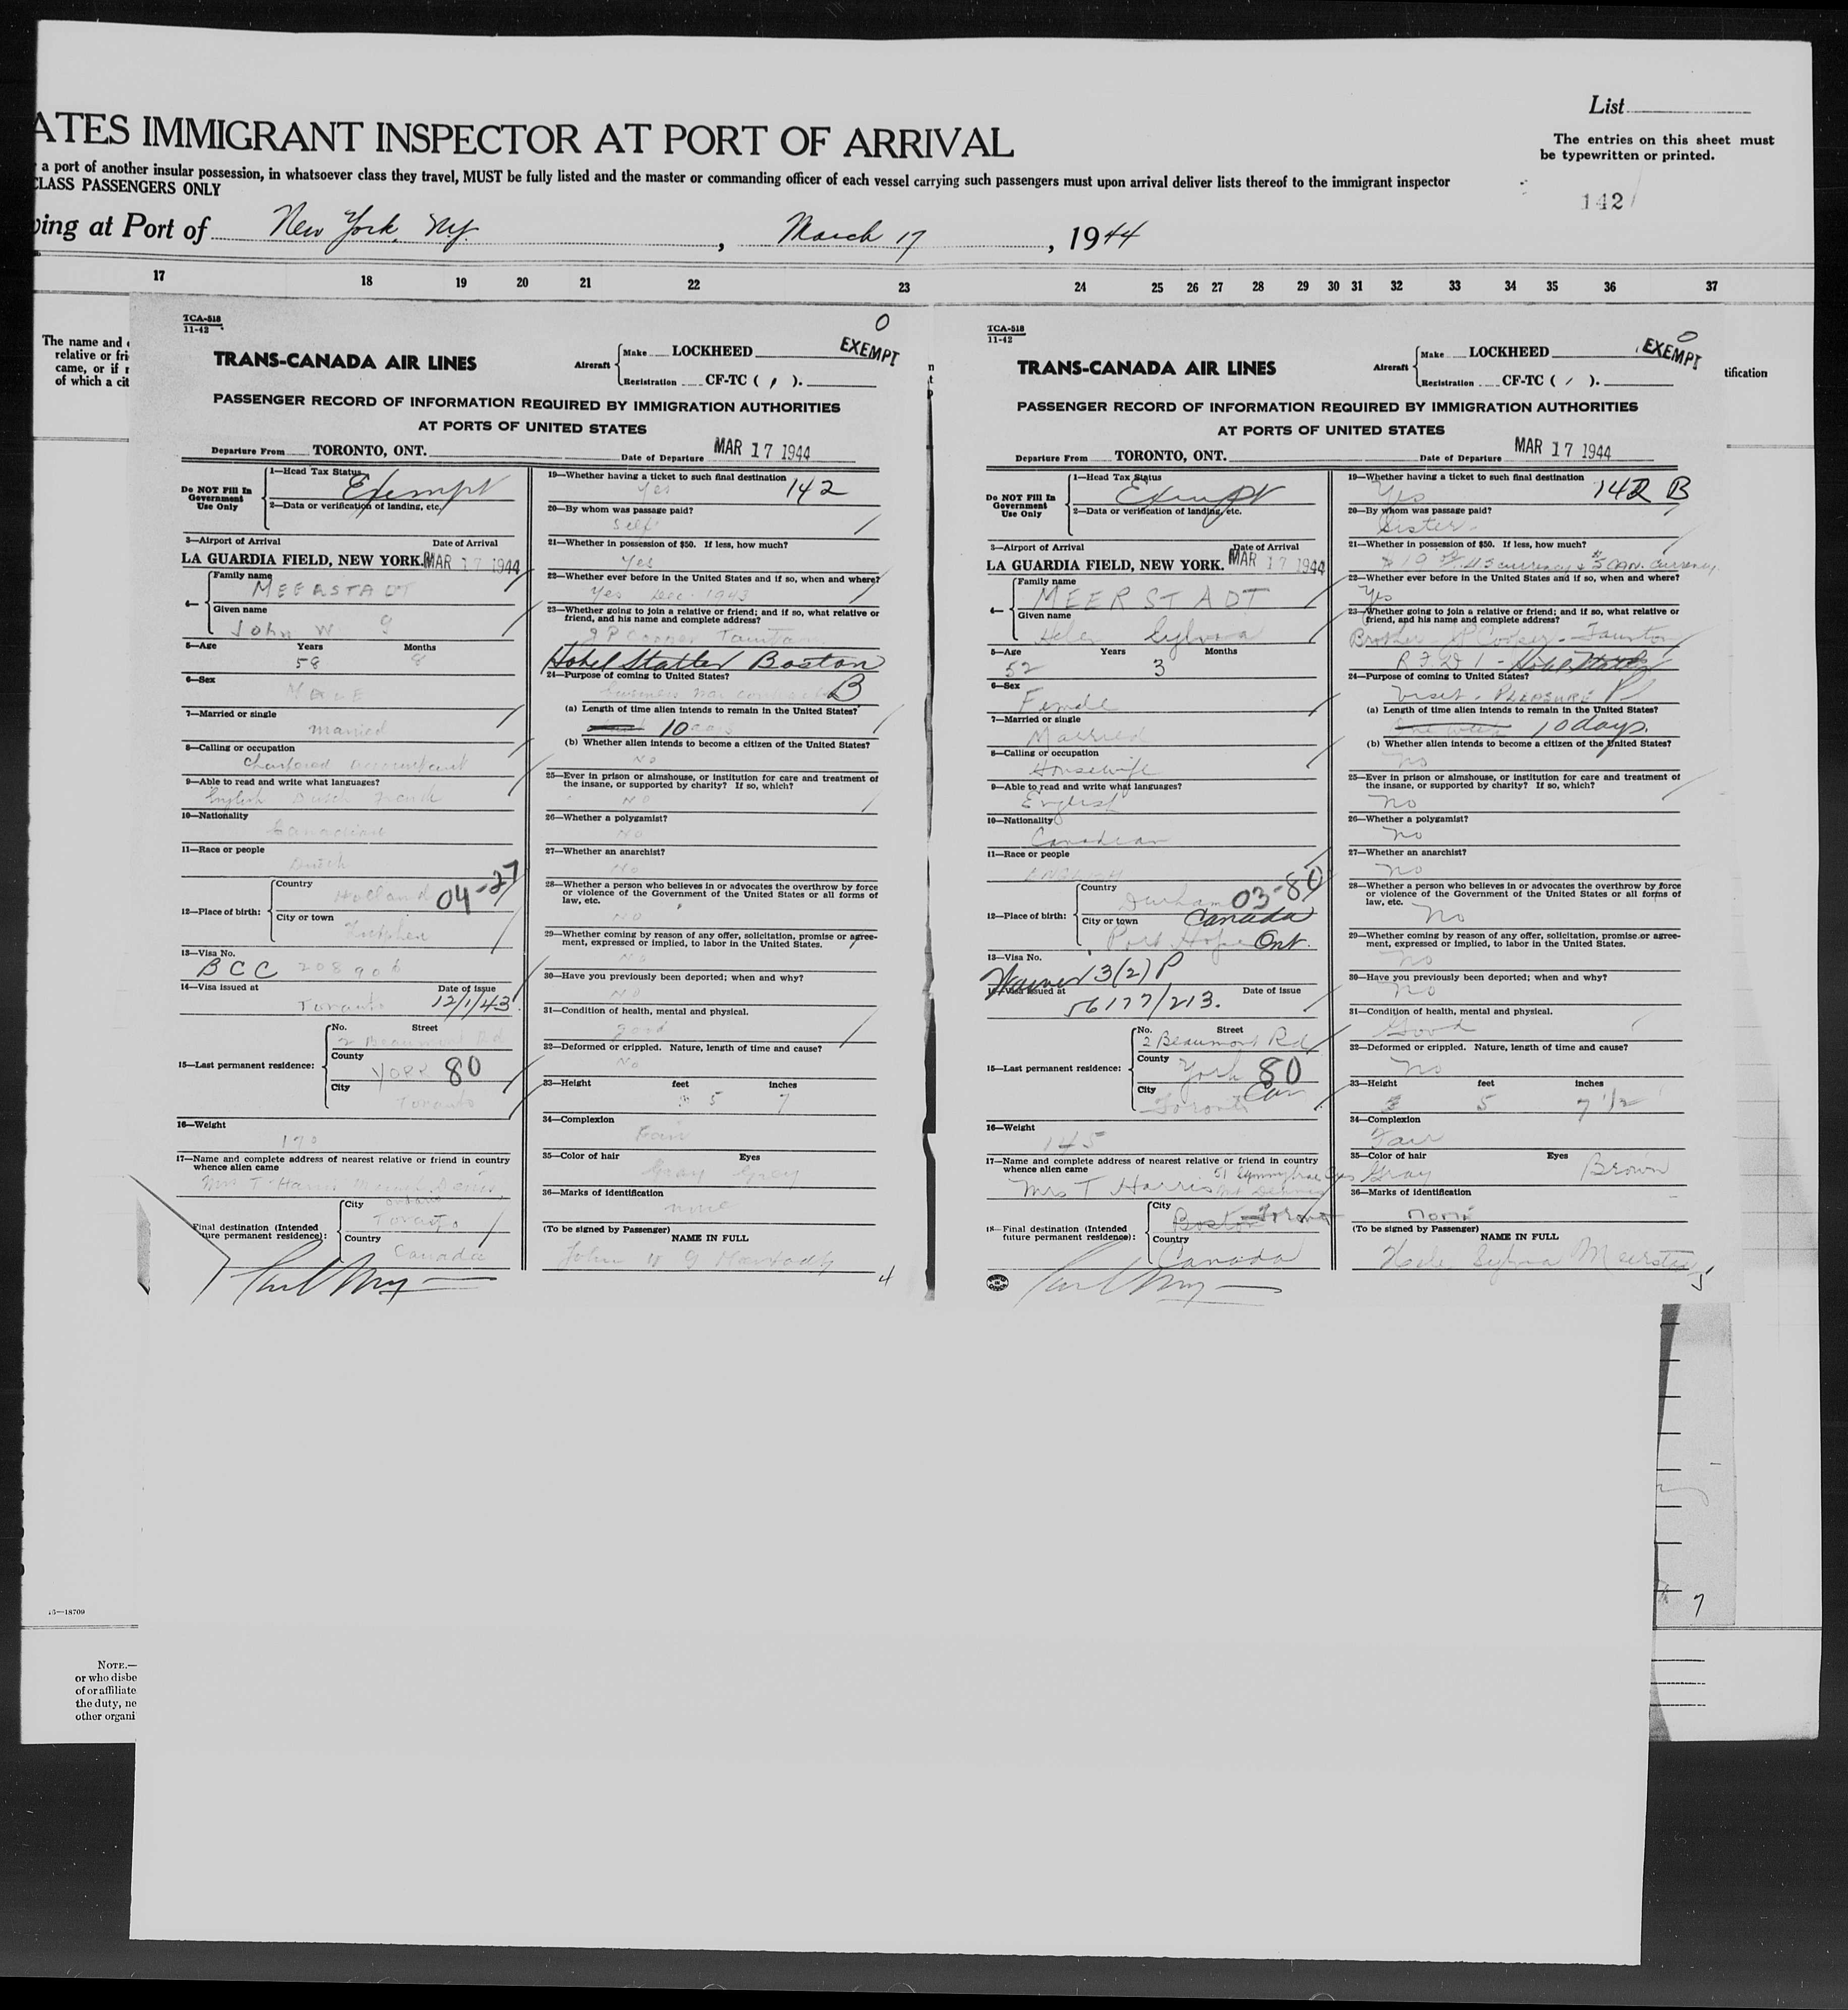 List
ATES IMMIGRANT INSPECTOR AT PORT OF ARRIVAL
The entries on this sheet must
be typewritten or printed.
a port of another insular possession, in whatsoever class they travel, MUST be fully listed and the master or commanding officer of each vessel carrying such passengers must upon arrival deliver lists thereof to the immigrant inspector
CLASS PASSENGERS ONLY
142
ving at Port of New York, N.Y. , March 17 , 1944
17 18 19 20 21 22 23 24 25 26 27 28 29 30 31 32 33 34 35 36 37
The name and
relative or fri
came, or if
of which a cit
TCA-518
11-42
0
EXEMPT
TRANS-CANADA AIR LINES
Aircraft Make LOCKHEED
Registration CF-TC ( ).
PASSENGER RECORD OF INFORMATION REQUIRED BY IMMIGRATION AUTHORITIES
AT PORTS OF UNITED STATES
Departure From TORONTO, ONT. Date of Departure MAR 17 1944
Do NOT Fill In
Government
Use Only
1—Head Tax Status
Exempt
2—Data or verification of landing, etc.
3—Airport of Arrival Date of Arrival
LA GUARDIA FIELD, NEW YORK. MAR 17 1944
4— Family name
MEERSTADT
Given name
John W G
5—Age Years Months
58 8
6—Sex
MALE
7—Married or single
married
8—Calling or occupation
Chartered accountant
9—Able to read and write what languages?
English Dutch French
10—Nationality
Canadian
11—Race or people
Dutch
12—Place of birth: Country
Holland 04-27
City or town
Zutphen
13—Visa No.
BCC 208906
14—Visa issued at Date of issue
Toronto 12/1/43
15—Last permanent residence: No. Street
2 Beaumont Rd
County
YORK 80
City
Toronto
16—Weight
170
17—Name and complete address of nearest relative or friend in country
whence alien came
Mrs T Harris Mount Dennis
Ontario
Final destination (Intended
ture permanent residence):
City
Toronto
Country
Canada
19—Whether having a ticket to such final destination
Yes 142
20—By whom was passage paid?
Self
21—Whether in possession of $50. If less, how much?
Yes
22—Whether ever before in the United States and if so, when and where?
Yes Dec. 1943
23—Whether going to join a relative or friend; and if so, what relative or
friend, and his name and complete address?
J P Cooper Taunton
Hotel Statler Boston
24—Purpose of coming to United States?
business B
(a) Length of time alien intends to remain in the United States?
10 days
(b) Whether alien intends to become a citizen of the United States?
No
25—Ever in prison or almshouse, or institution for care and treatment of
the insane, or supported by charity? If so, which?
No
26—Whether a polygamist?
No
27—Whether an anarchist?
No
28—Whether a person who believes in or advocates the overthrow by force
or violence of the Government of the United States or all forms of
law, etc.
No
29—Whether coming by reason of any offer, solicitation, promise or agree-
ment, expressed or implied, to labor in the United States.
No
30—Have you previously been deported; when and why?
No
31—Condition of health, mental and physical.
good
32—Deformed or crippled. Nature, length of time and cause?
No
33—Height feet inches
5 7
34—Complexion
Fair
35—Color of hair Eyes
Gray Gray
36—Marks of identification
none
(To be signed by Passenger)
NAME IN FULL
John W G
4
TCA-518
11-42
0
EXEMPT
TRANS-CANADA AIR LINES
Aircraft Make LOCKHEED
Registration CF-TC ( ).
tification
PASSENGER RECORD OF INFORMATION REQUIRED BY IMMIGRATION AUTHORITIES
AT PORTS OF UNITED STATES
Departure From TORONTO, ONT. Date of Departure MAR 17 1944
Do NOT Fill In
Government
Use Only
1—Head Tax Status
Exempt
2—Data or verification of landing, etc.
3—Airport of Arrival Date of Arrival
LA GUARDIA FIELD, NEW YORK. MAR 17 1944
4— Family name
MEERSTADT
Given name
Helen Sylvia
5—Age Years Months
52 3
6—Sex
Female
7—Married or single
Married
8—Calling or occupation
Housewife
9—Able to read and write what languages?
English
10—Nationality
Canadian
11—Race or people
ENGLISH
12—Place of birth: Country
Durham 03-80
Canada
City or town
Port Hope Ont.
13—Visa No.
Waiver 3(2) P
14—Visa issued at Date of issue
56177/213.
15—Last permanent residence: No. Street
2 Beaumont Rd
County
York 80
City Can
Toronto
16—Weight
145
17—Name and complete address of nearest relative or friend in country
whence alien came
Mrs T Harris 51
Mt Dennis
18—Final destination (Intended
future permanent residence):
City
Boston Toronto
Country
Canada
19—Whether having a ticket to such final destination
Yes 142 B
20—By whom was passage paid?
Sister
21—Whether in possession of $50. If less, how much?
$10 U.S currency & $5 CAN. Currency
22—Whether ever before in the United States and if so, when and where?
Yes
23—Whether going to join a relative or friend; and if so, what relative or
friend, and his name and complete address?
Brother J P Cooper - Taunton
R.F.D 1 - Hotel Statler
24—Purpose of coming to United States?
Visit - PLEASURE P
(a) Length of time alien intends to remain in the United States?
One week 10 days.
(b) Whether alien intends to become a citizen of the United States?
No
25—Ever in prison or almshouse, or institution for care and treatment of
the insane, or supported by charity? If so, which?
No
26—Whether a polygamist?
No
27—Whether an anarchist?
No
28—Whether a person who believes in or advocates the overthrow by force
or violence of the Government of the United States or all forms of
law, etc.
No
29—Whether coming by reason of any offer, solicitation, promise or agree-
ment, expressed or implied, to labor in the United States.
No
30—Have you previously been deported; when and why?
No
31—Condition of health, mental and physical.
Good
32—Deformed or crippled. Nature, length of time and cause?
No
33—Height feet inches
5 7 1/2
34—Complexion
Fair
35—Color of hair Eyes
Gray Brown
36—Marks of identification
None
(To be signed by Passenger)
NAME IN FULL
Helen Sylvia Meerstadt
5
7
16—18709
NOTE.—
or who disbe
of or affiliate
the duty, ne
other organi